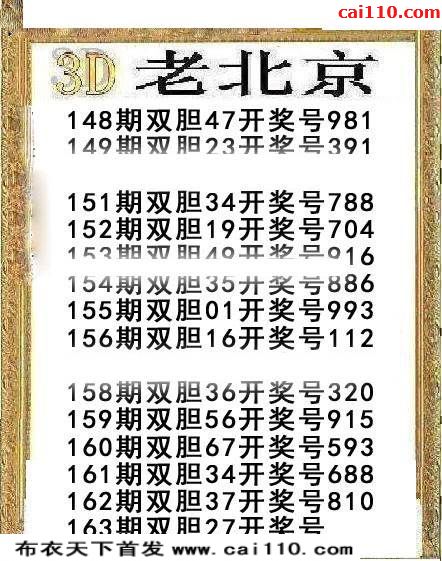 cai110.com
3D 老北京
148期双胆47开奖号981
149期双胆23开奖号391
151期双胆34开奖号788
152期双胆19开奖号704
153期双胆49开奖号916
154期双胆35开奖号886
155期双胆01开奖号993
156期双胆16开奖号112
158期双胆36开奖号320
159期双胆56开奖号915
160期双胆67开奖号593
161期双胆34开奖号688
162期双胆37开奖号810
163期双胆27开奖号
布衣天下首发 www.cai110.com